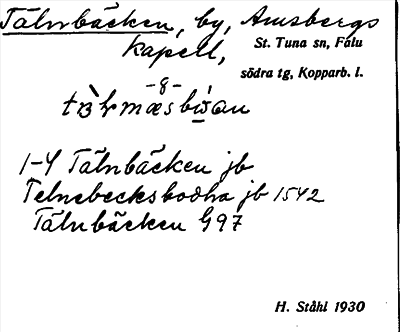 Tälnbäcken, by, Amsbergs
kapell,
St. Tuna sn, Falu
södra tg, Kopparb. l.
-8-
1-4 Tälnbäcken jb
Telnebecksbodha jb 1542
Tälnbäcken G97
H. Ståhl 1930